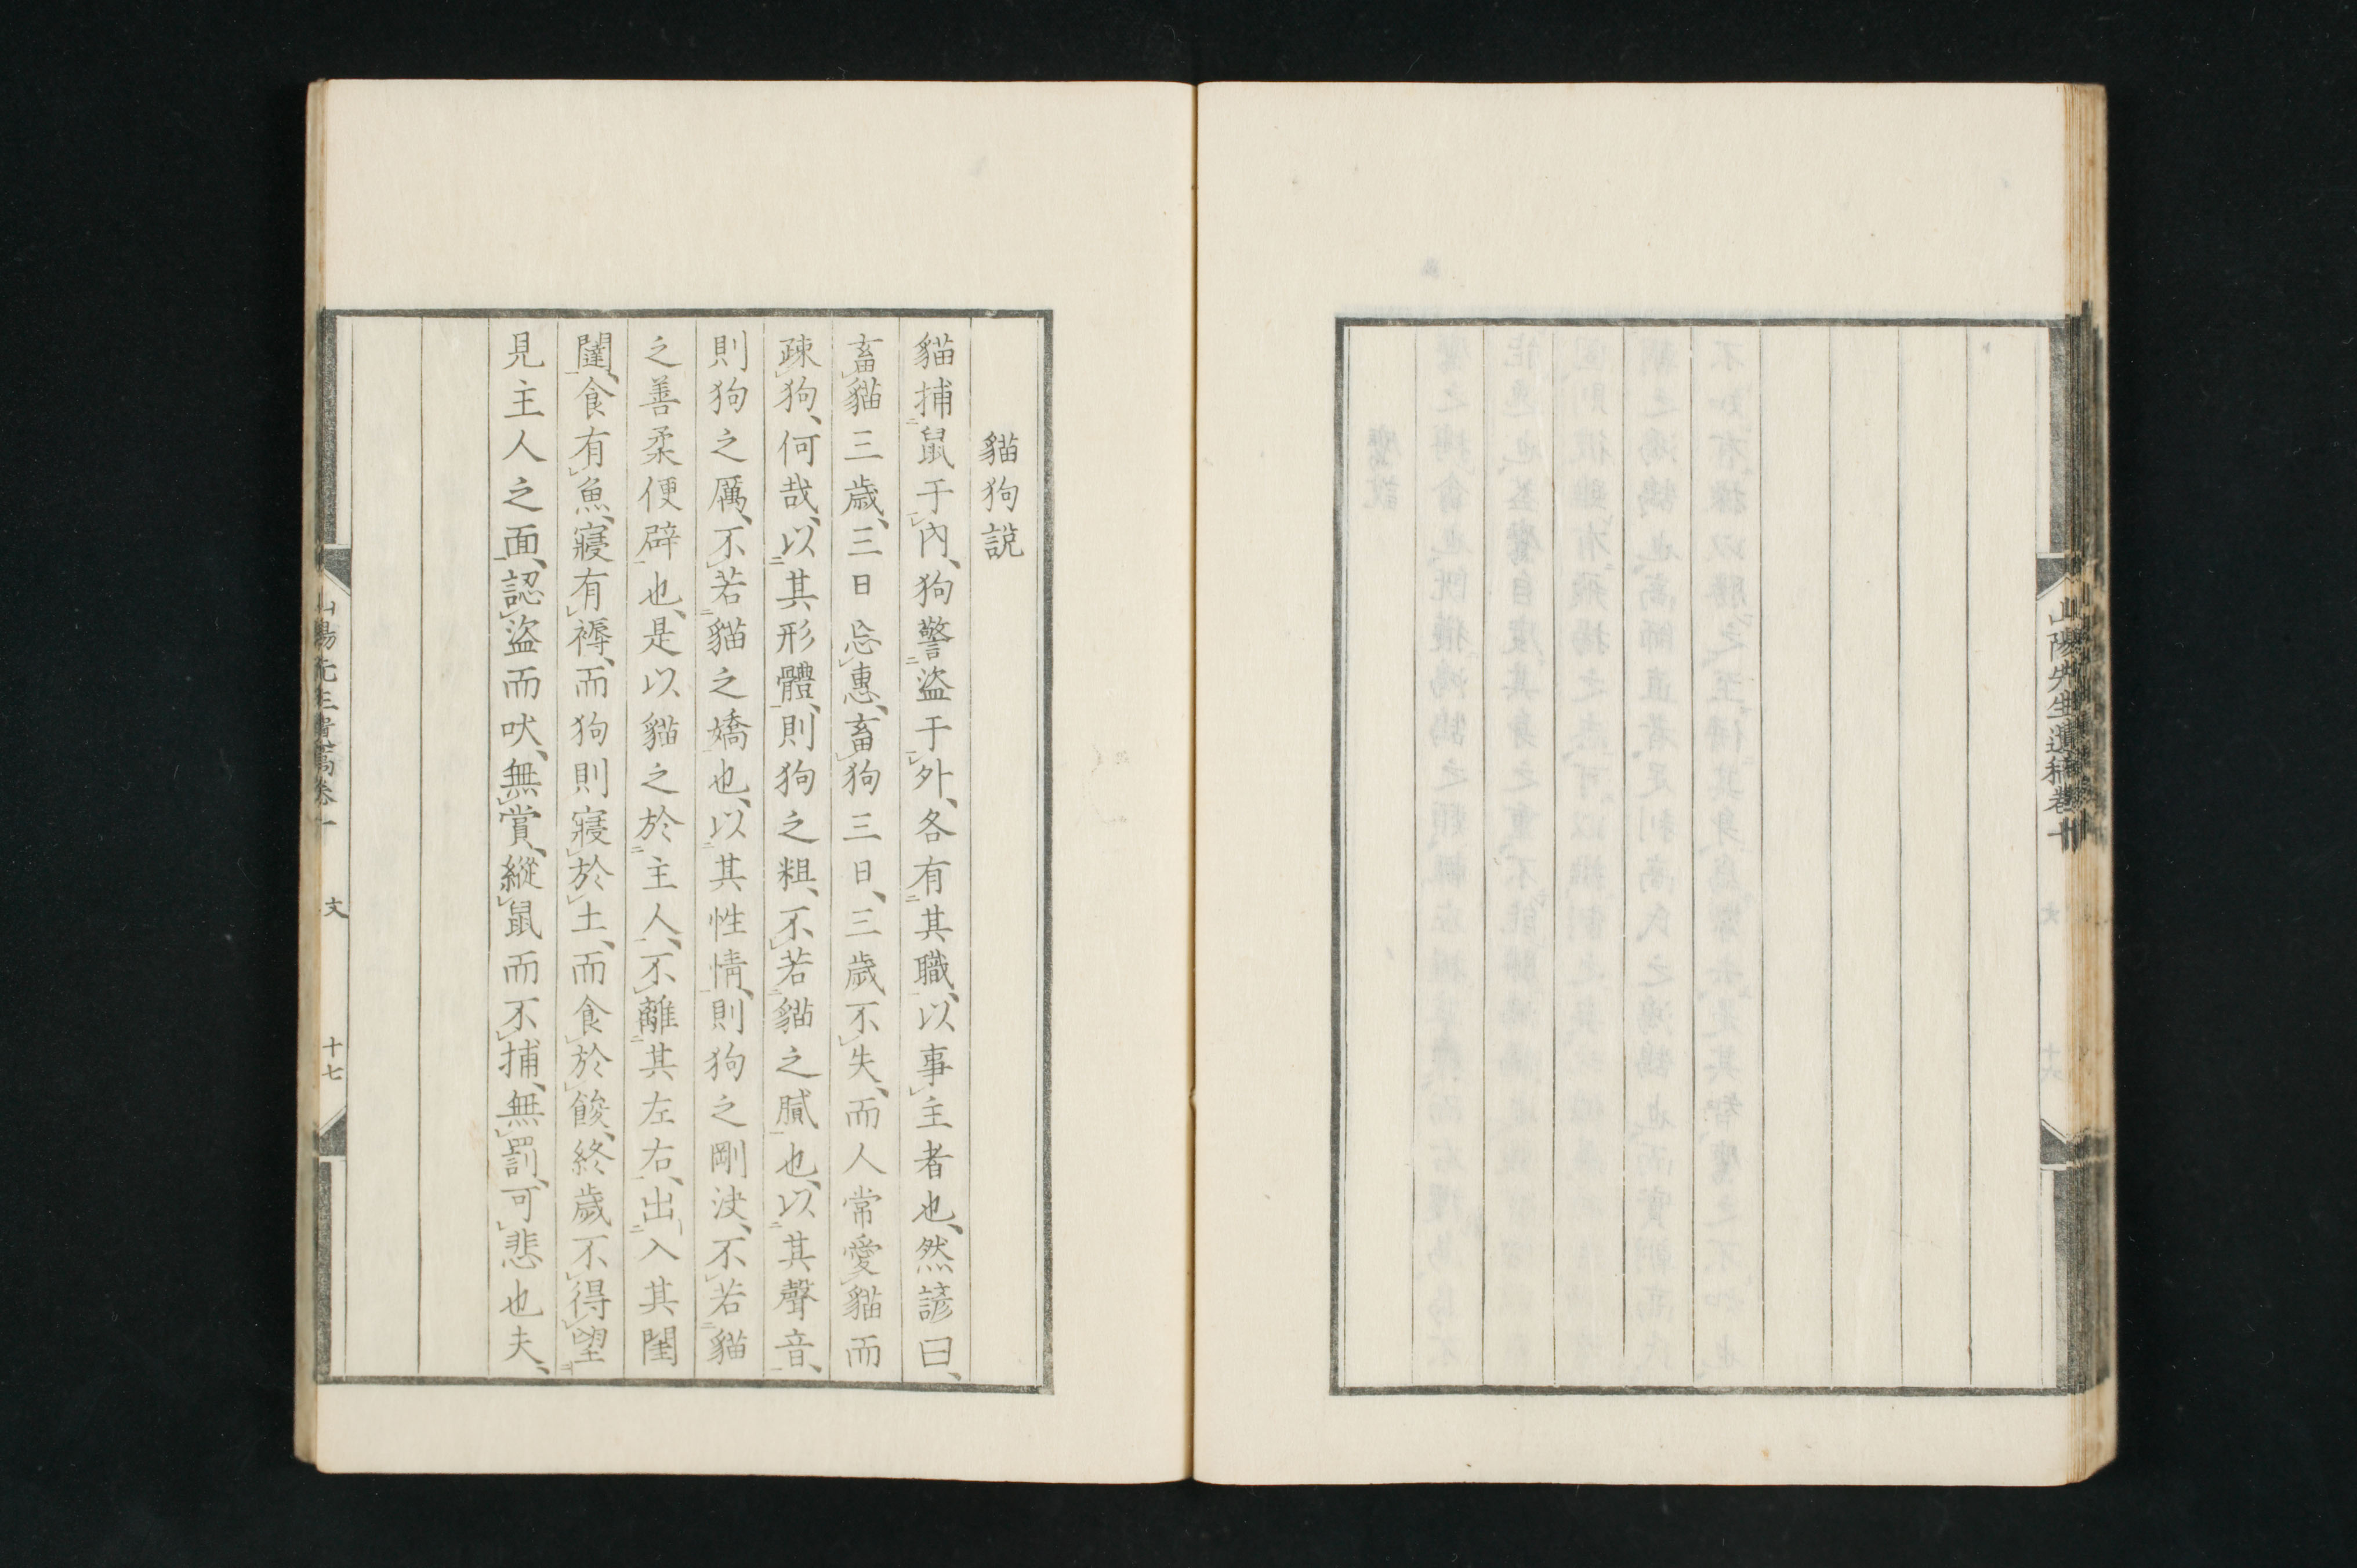 山陽先生遺稿卷十
貓狗説
貓捕鼠于內、狗警盜于外、各有其職、以事主者也、然諺曰、
畜貓三歳、三日忘惠、畜狗三日、三歳不失、而人常愛貓而
疎狗、何哉、以其形體、則狗之粗、不若貓之膩也、以其聲音、
則狗之厲、不若貓之嬌也、以其性情、則狗之剛決、不若貓
之善柔便辟也、是以貓之於主人、不離其左右、出入其閨
闥、食有魚、寢有褥、而狗則寢於土、而食於餕、終歲不得望
見主人之面、認盜而吠、無賞、縱鼠而不捕、無罰、可悲也夫、
文
十七